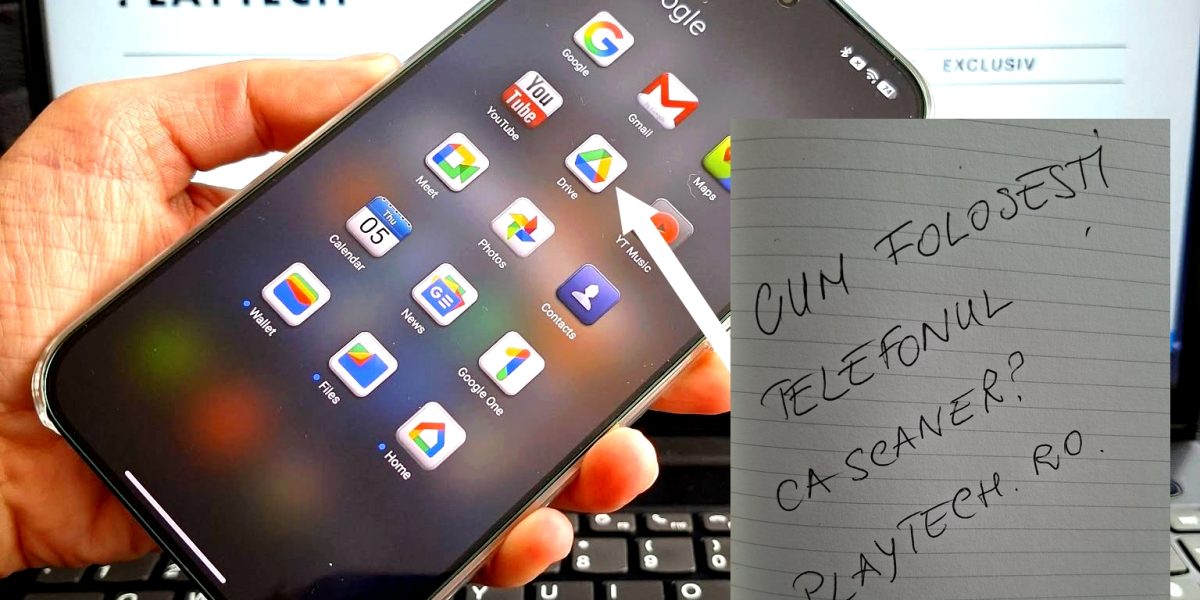 PLAYTECH
EXCLUSIV
ogle
74
Google
Gmail
Maps
You
Tube
YouTube
Drive
YT Music
Meet
Photos
Contacts
Thu
05
Calendar
News
Google One
Wallet
Files
Home
CUM FOLOSEȘTI
TELEFONUL
CA SCANER?
PLAYTECH.RO.
8
9
Y U I O